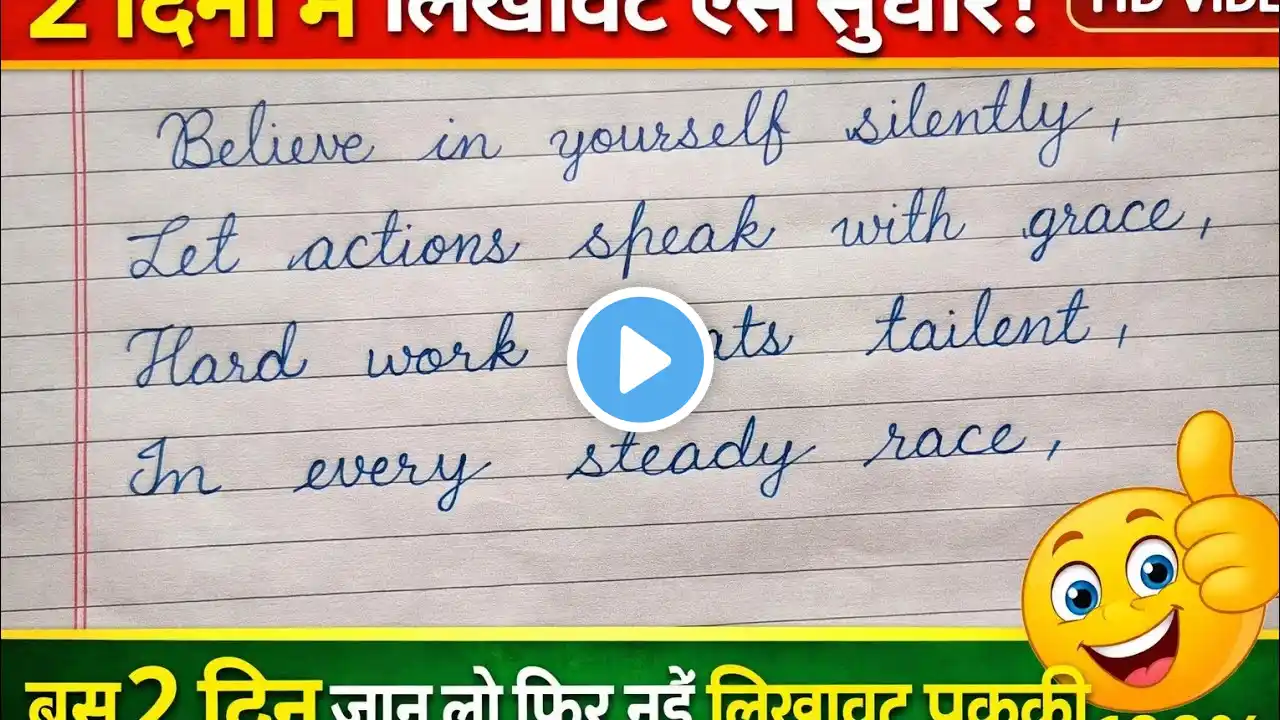 2 दिनों में लिखावट ऐसे सुधारें! HD VIDE
Believe in yourself silently,
Let actions speak with grace,
Hard work ats tailent,
In every steady race,
बस 2 दिन जान लो फिर नई लिखावट पक्की